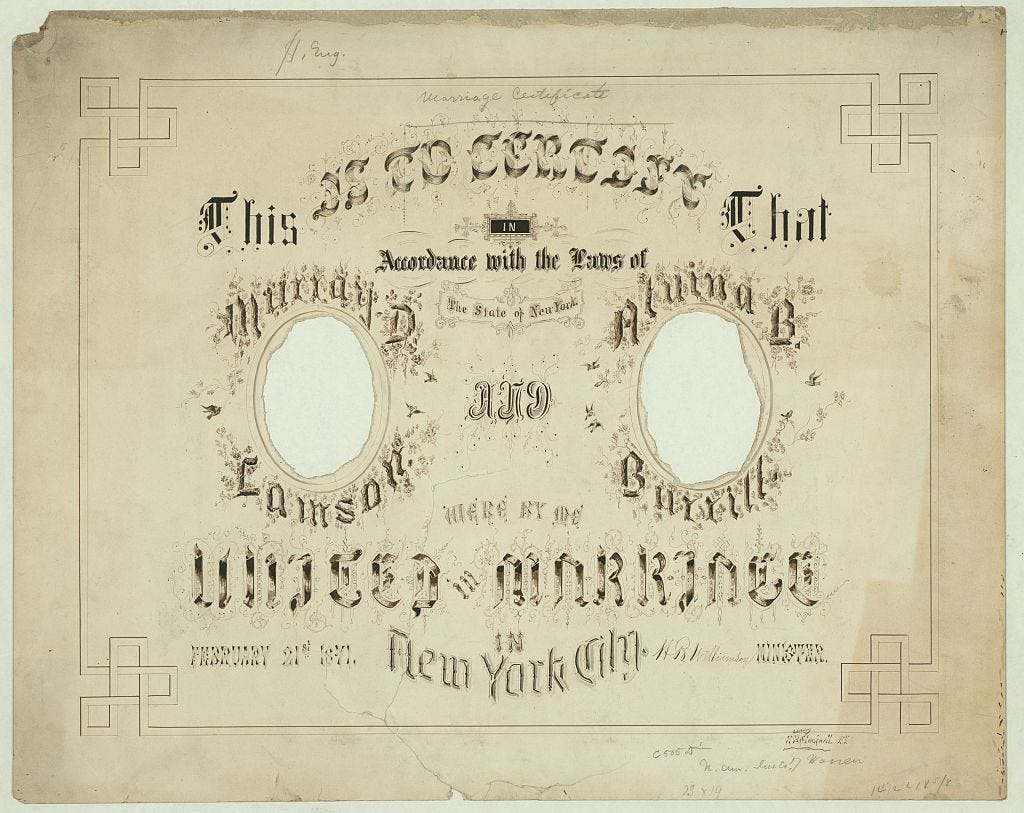 Eng.
Marriage Certificate
This IS TO CERTIFY That
IN
Accordance with the Laws of
The State of New York.
Murray D. Lamson.
AND
Aluina B. Burrill.
WERE BY ME
UNITED in MARRIAGE
IN
FEBRUARY 21st 1871. New York City. H B Williamson MINISTER.
C 535 D1
Warren
23 x 19